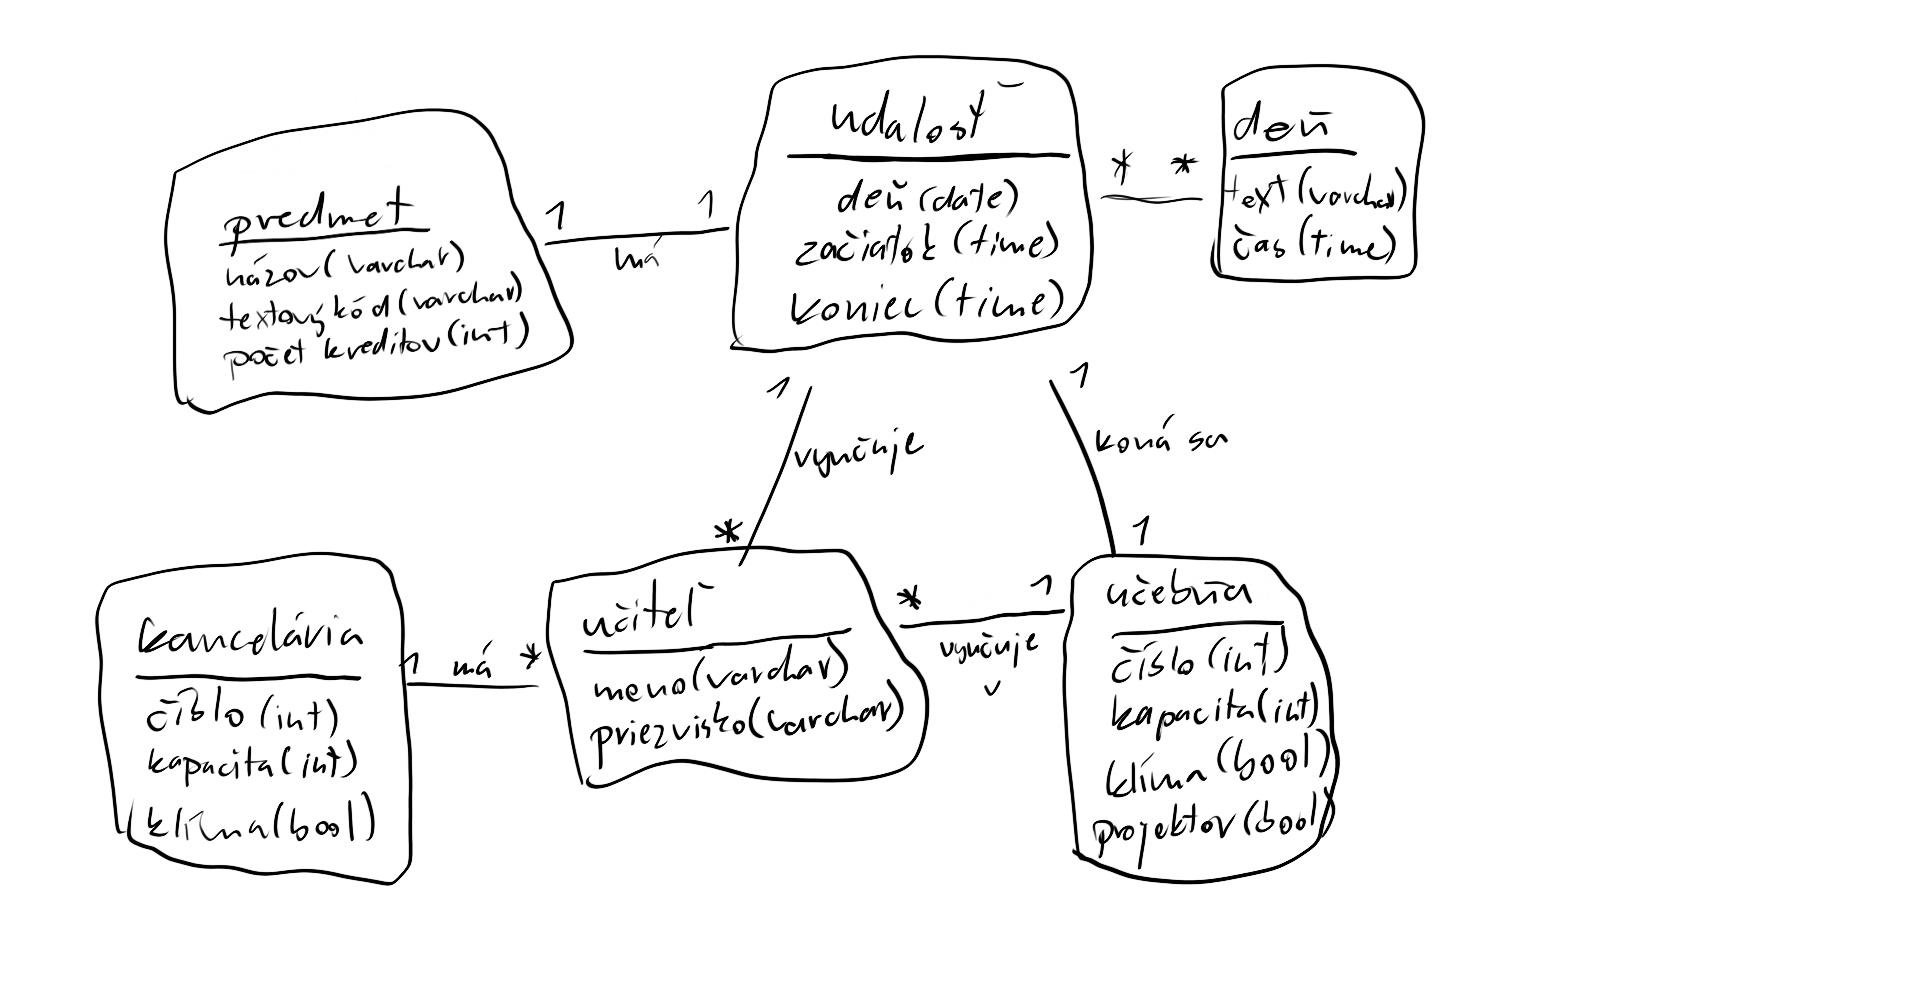 predmet
názov (varchar)
textový kód (varchar)
počet kreditov (int)
1 1
má
udalosť
deň (date)
začiatok (time)
koniec (time)
* *
deň
text (varchar)
čas (time)
1
vyučuje
*
1
koná sa
1
kancelária
číslo (int)
kapacita (int)
klíma (bool)
1 má *
učiteľ
meno (varchar)
priezvisko (varchar)
* 1
vyučuje
v
učebňa
číslo (int)
kapacita (int)
klíma (bool)
projektor (bool)